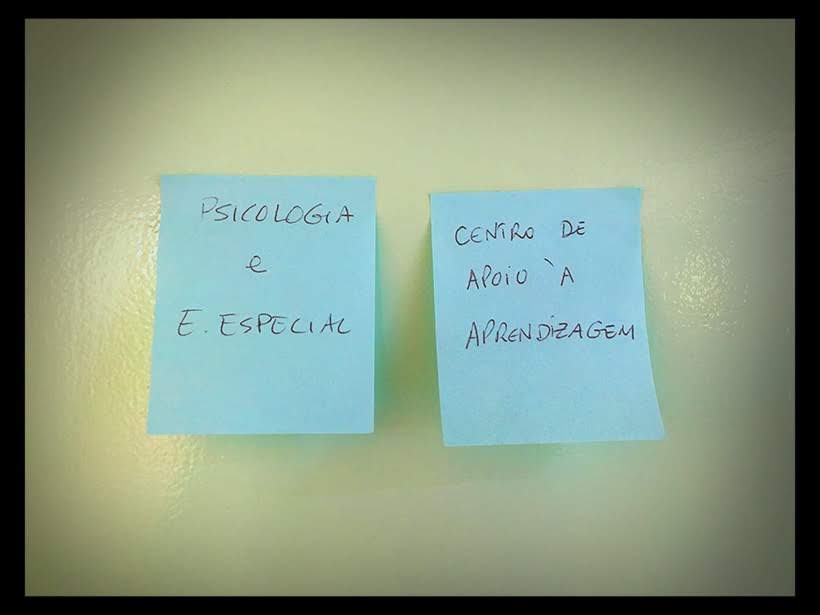 PSICOLOGIA
e
E. ESPECIAL
CENTRO DE
APOIO À
APRENDIZAGEM